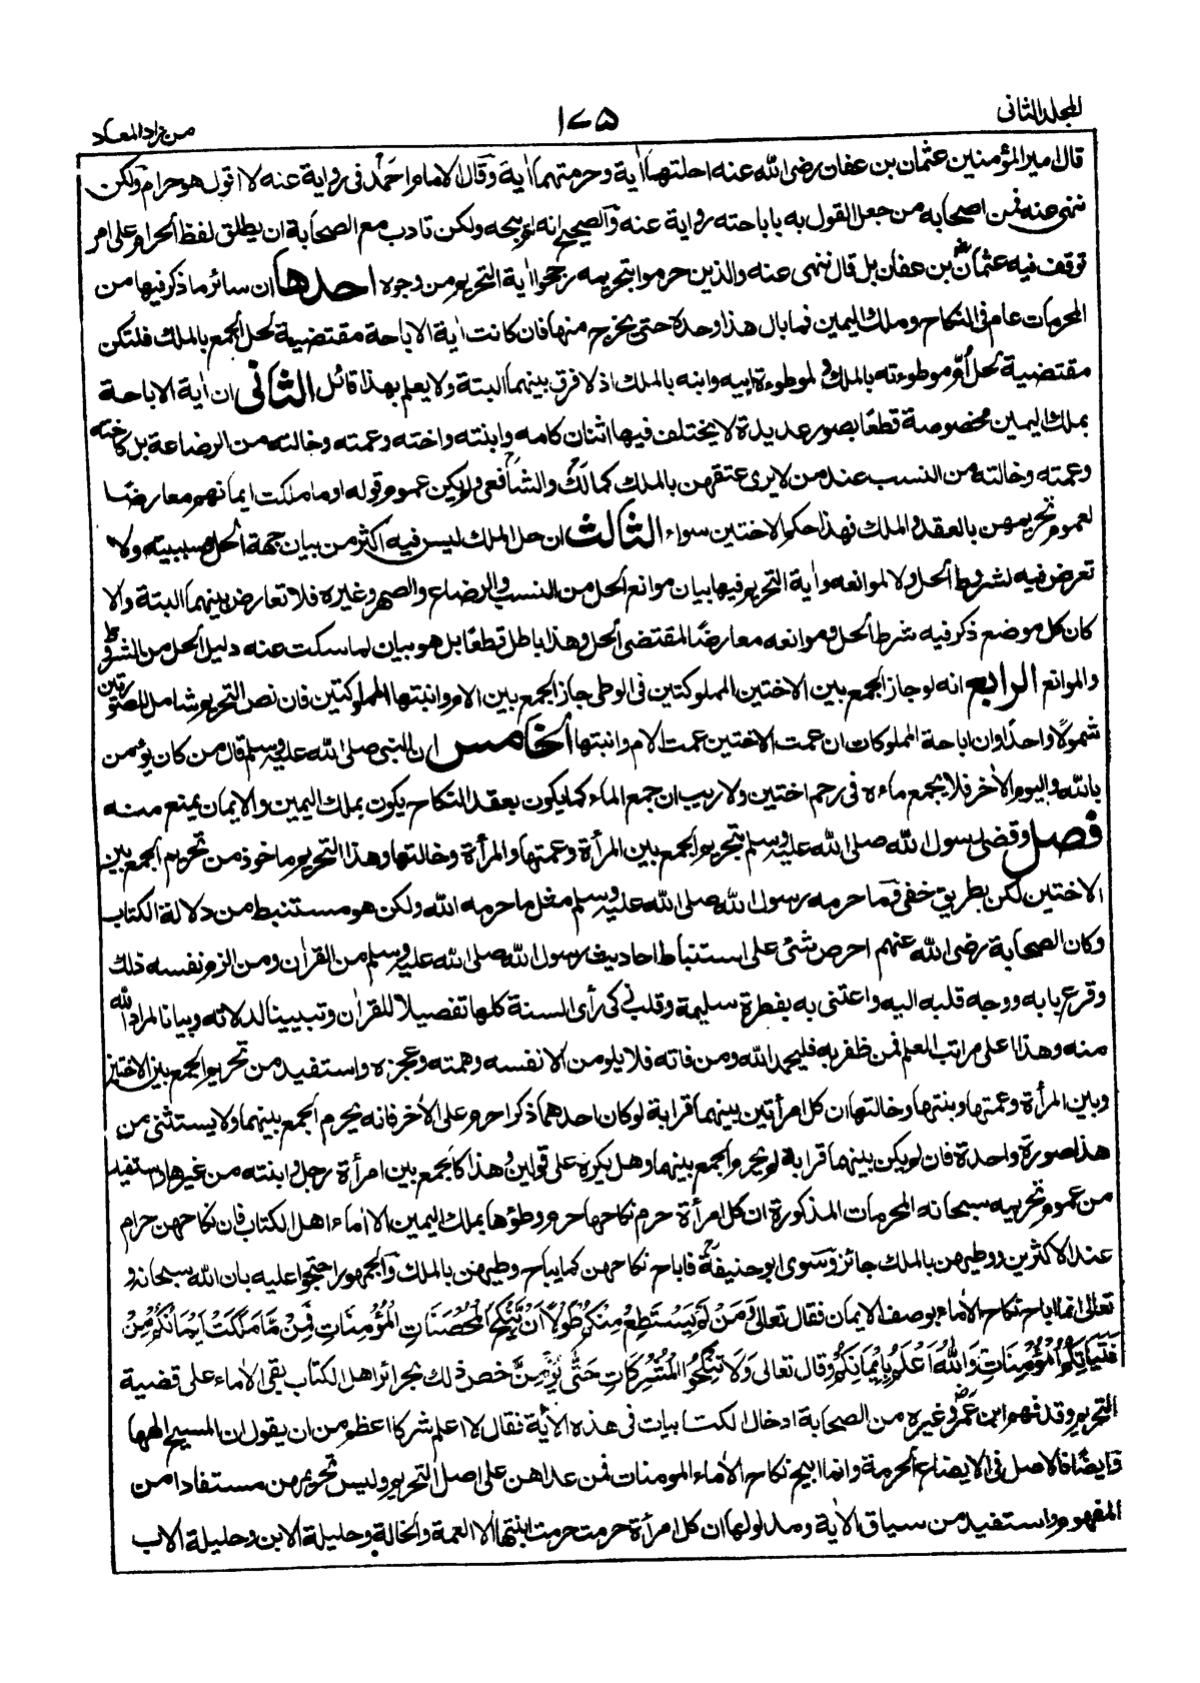 المجلد الثانى
١٧٥
من زاد المعاد
قال امير المؤمنين عثمان بن عفان رضى الله عنه احلتهما اٰية وحرمتهما اٰية وقال الامام احمد فى رواية عنه لا اقول هو حرام ولكن
ننهى عنه فمن اصحابه من جعل القول به باباحته رواية عنه والصحيح انه لم يبحه ولكن تادب مع الصحابة ان يطلق لفظ الحرام على امر
توقف فيه عثمان بن عفان بل قال ننهى عنه والذين حرموا بتحريمه رجحوا اٰية التحريم من وجوه احدها ان سائر ما ذكر فيها من
المحرمات عام فى النكاح وملك اليمين فما بال هذا وحده حتى يخرج منها فان كانت اٰية الاباحة مقتضية لحل الجمع بالملك فلتكن
مقتضية لحل ام موطوءته بالملك ولموطوءة ابيه وابنه بالملك اذ لا فرق بينهما البتة ولا يعلم بهذا قائل الثانى ان اٰية الاباحة
بملك اليمين مخصوصة قطعًا بصور عديدة لا يختلف فيها اثنان كامه وابنته واخته وعمته وخالته من الرضاعة بل كاخته
وعمته وخالته من النسب عند من لا يرى عتقهن بالملك كمالك والشافعى ولم يكن عموم قوله او ما ملكت ايمانهم معارضًا
لعموم تحريمهن بالعقد والملك فهذا حكم الاختين سواء الثالث ان حل الملك ليس فيه اكثر من بيان جهة الحل وسببيته ولا
تعرض فيه لشروط الحل ولا لموانعه واٰية التحريم فيها بيان موانع الحل من النسب والرضاع والصهر وغيره فلا تعارض بينهما البتة والا
كان كل موضع ذكر فيه شرط الحل وموانعه معارضًا لمقتضى الحل وهذا باطل قطعًا بل هو بيان لما سكت عنه دليل الحل من الشروط
والموانع الرابع انه لو جاز الجمع بين الاختين المملوكتين فى الوطى جاز الجمع بين الام وابنتها المملوكتين فان نص التحريم شامل للصورتين
شمولًا واحدًا وان اباحة المملوكات ان عمت الاختين عمت الام وابنتها الخامس ان النبى صلى الله عليه وسلم قال من كان يؤمن
بالله واليوم الاٰخر فلا يجمع ماءه فى رحم اختين ولا ريب ان جمع الماء كما يكون بعقد النكاح يكون بملك اليمين والايمان يمنع منه
فصل وقضى رسول الله صلى الله عليه وسلم بتحريم الجمع بين المرأة وعمتها والمرأة وخالتها وهذا التحريم ماخوذ من تحريم الجمع بين
الاختين لكن بطريق خفى فما حرمه رسول الله صلى الله عليه وسلم مثل ما حرمه الله ولكن هو مستنبط من دلالة الكتاب
وكان الصحابة رضى الله عنهم احرص شئ على استنباط احاديث رسول الله صلى الله عليه وسلم من القرأن ومن الزم نفسه ذلك
وقرع بابه ووجه قلبه اليه واعتنى به بفطرة سليمة وقلب ذكى رأى السنة كلها تفصيلا للقرأن وتبيينا لدلالاته وبيانا لمراد الله
منه وهذا اعلى مراتب العلم فمن ظفر به فليحمد الله ومن فاته فلا يلومن الا نفسه وهمته وعجزه واستفيد من تحريم الجمع بين الاختين
وبين المرأة وعمتها وبنتها وخالتها ان كل امرأتين بينهما قرابة لو كان احدهما ذكرا حرم على الاٰخر فانه يحرم الجمع بينهما ولا يستثنى من
هذا صورة واحدة فان لم يكن بينهما قرابة لم يحرم الجمع بينهما وهل يكره على قولين وهذا كالجمع بين امرأة رجل وابنته من غيرها واستفيد
من عموم تحريمه سبحانه المحرمات المذكورة ان كل امرأة حرم نكاحها حرم وطؤها بملك اليمين الا اماء اهل الكتاب فان نكاحهن حرام
عند الاكثرين ووطيهن بالملك جائز وسوى ابو حنيفة فاباح نكاحهن كما يباح وطيهن بالملك والجمهور احتجوا عليه بان الله سبحانه و
تعالى انما اباح نكاح الأماء بوصف الايمان فقال تعالى وَمَنْ لَّمْ يَسْتَطِعْ مِنْكُمْ طَوْلًا اَنْ يَّنْكِحَ الْمُحْصَنَاتِ الْمُؤْمِنَاتِ فَمِنْ مَّا مَلَكَتْ اَيْمَانُكُمْ مِنْ
فَتَيَاتِكُمُ الْمُؤْمِنَاتِ وَاللّٰهُ اَعْلَمُ بِاِيْمَانِكُمْ وقال تعالى وَلَا تَنْكِحُوا الْمُشْرِكَاتِ حَتّٰى يُؤْمِنَّ خص ذلك بحرائر اهل الكتاب بقى الأماء على قضية
التحريم وقد فهم ابن عمر وغيره من الصحابة ادخال الكتابيات فى هذه الأية فقال لا اعلم شركا اعظم من ان يقول ان المسيح الٰهها
وايضًا فالاصل فى الابضاع الحرمة وانما ابيح نكاح الأماء المومنات فمن عداهن على اصل التحريم وليس تحريمهن مستفادا من
المفهوم واستفيد من سياق الأية ومدلولها ان كل امرأة حرمت حرمت ابنتها الا العمة والخالة وحليلة الابن وحليلة الاب